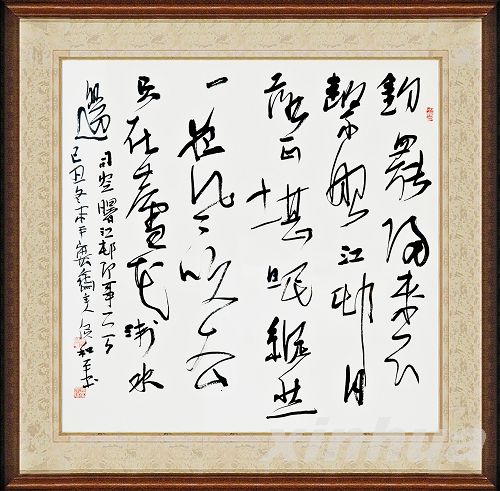 釣罷歸来不
繫船江邨月
落正堪眠縱然
一夜風吹去
只在蘆花浅水
邊
司空曙江邨即事一首
己丑冬末於 和平书
xinhua